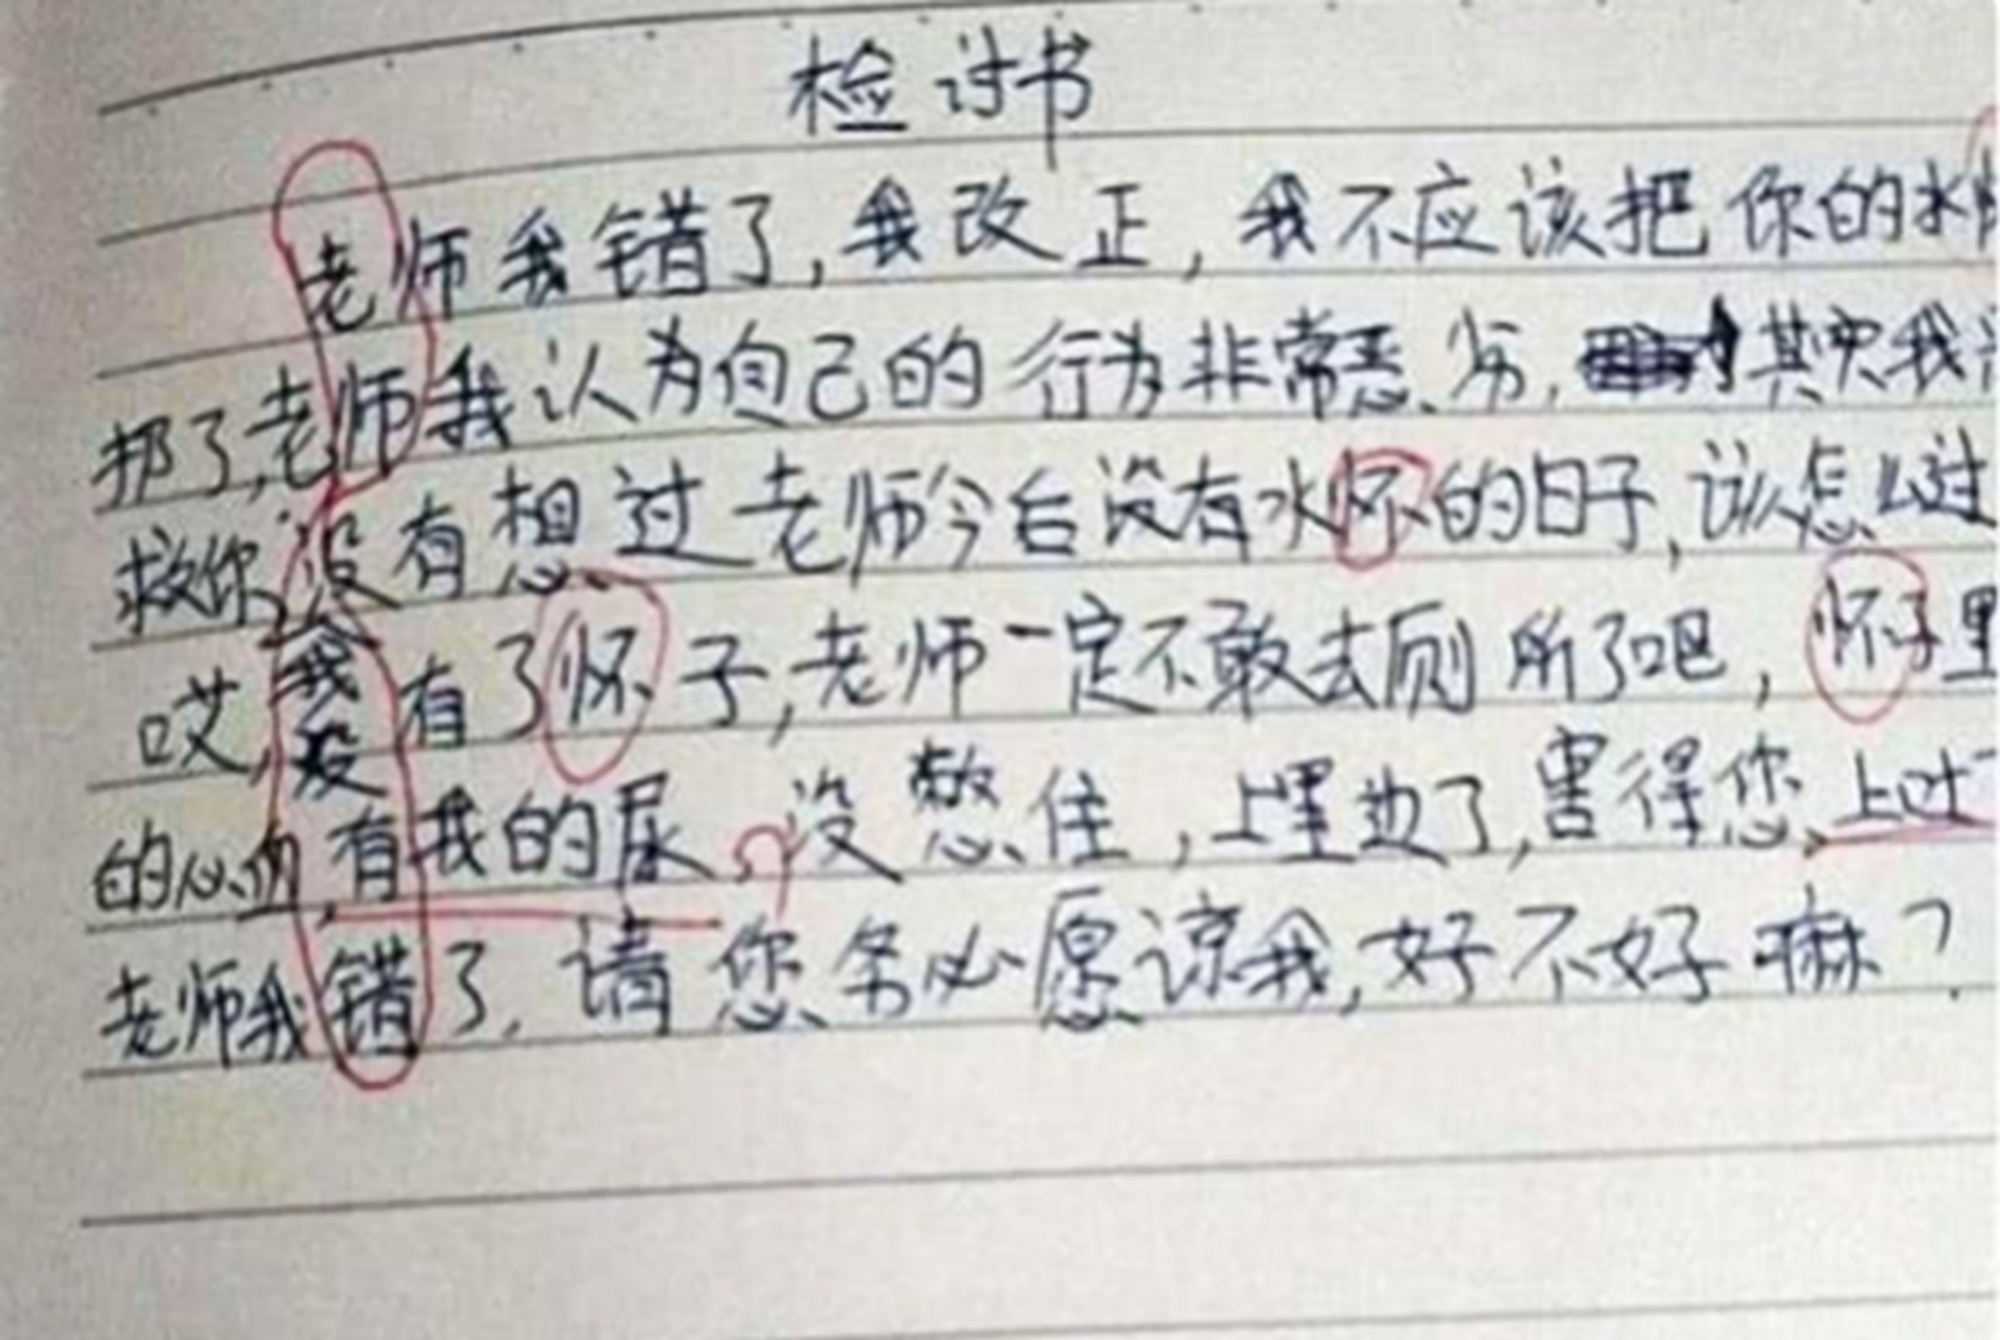 检讨书
老师我错了,我改正,我不应该把你的水
扔了,老师我认为自己的行为非常恶劣,其实我
救你,没有想过老师今后没有水怀的日子,该怎么过
哎,我没有了怀子,老师一定不敢去厕所了吧,怀子里
的心血,有我的尿,没憋住,上里边了,害得您上吐
老师我错了,请您务必愿谅我,好不好嘛?